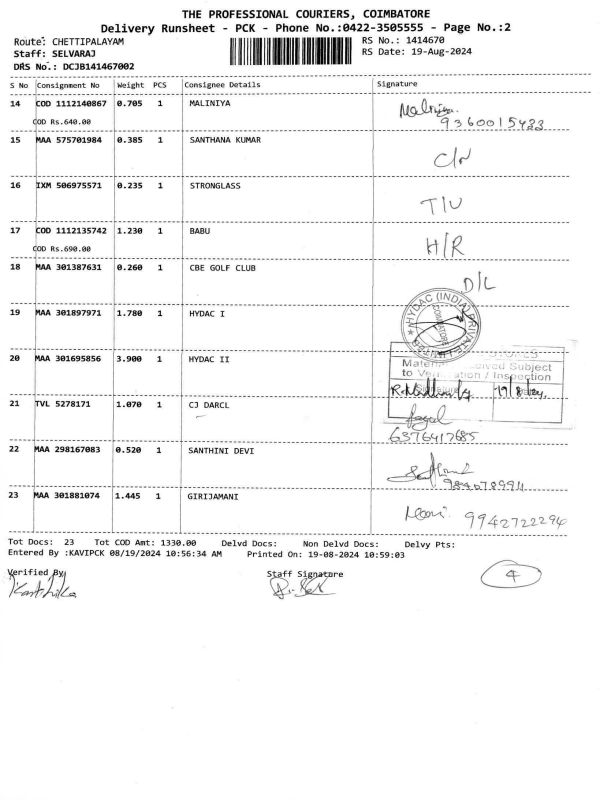 THE PROFESSIONAL COURIERS, COIMBATORE
Delivery Runsheet - PCK - Phone No.:0422-3505555 - Page No.:2
Route: CHETTIPALAYAM
RS No.: 1414670
Staff: SELVARAJ
RS Date: 19-Aug-2024
DRS No.: DCJB141467002
S No Consignment No Weight PCS Consignee Details Signature
14 COD 1112140867 0.705 1 MALINIYA
COD Rs.640.00
15 MAA 575701984 0.385 1 SANTHANA KUMAR
C/N
16 IXM 506975571 0.235 1 STRONGLASS
T/U
17 COD 1112135742 1.230 1 BABU
H/R
COD Rs.690.00
18 MAA 301387631 0.260 1 CBE GOLF CLUB
D/L
19 MAA 301897971 1.780 1 HYDAC I
HYDAC (INDIA) PRIVATE LIMITED
COIMBATORE
20 MAA 301695856 3.900 1 HYDAC II
STORES
Material Received Subject
to Verification / Inspection
19/8/24
21 TVL 5278171 1.070 1 CJ DARCL
6376417685
22 MAA 298167083 0.520 1 SANTHINI DEVI
23 MAA 301881074 1.445 1 GIRIJAMANI
9942722294
Tot Docs: 23 Tot COD Amt: 1330.00 Delvd Docs: Non Delvd Docs: Delvy Pts:
Entered By :KAVIPCK 08/19/2024 10:56:34 AM Printed On: 19-08-2024 10:59:03
Verified By
Staff Signature
4
Karthika